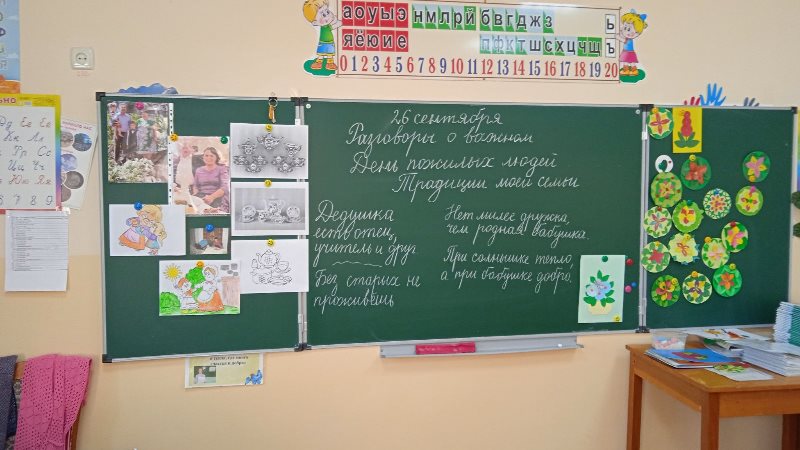 аоуыэ нмлрй бвгджз ь
яёюие пфктшсхцчщ ъ
0 1 2 3 4 5 6 7 8 9 10 11 12 13 14 15 16 17 18 19 20
26 сентября
Разговоры о важном
День пожилых людей
Традиции моей семьи
Дедушка
есть отец,
учитель и друг
Без старых не
проживёшь
Нет милее дружка,
чем родная бабушка.
При солнышке тепло,
а при бабушке добро.